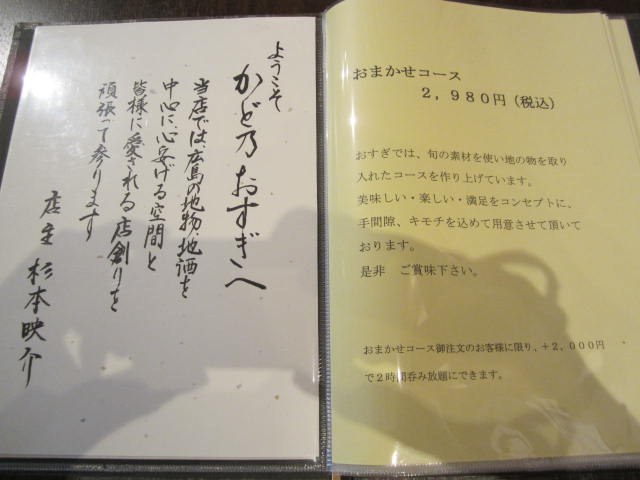 ようこそ
かど乃 おすぎへ
当店では、広島の地物、地酒を
中心に心安げる空間と
皆様に愛される店創りを
頑張って参ります
店主 杉本映介
おまかせコース
２，９８０円（税込）
おすぎでは、旬の素材を使い地の物を取り
入れたコースを作り上げています。
美味しい・楽しい・満足をコンセプトに、
手間隙、キモチを込めて用意させて頂いて
おります。
是非　ご賞味下さい。
おまかせコース御注文のお客様に限り、＋２，０００円
で２時間呑み放題にできます。